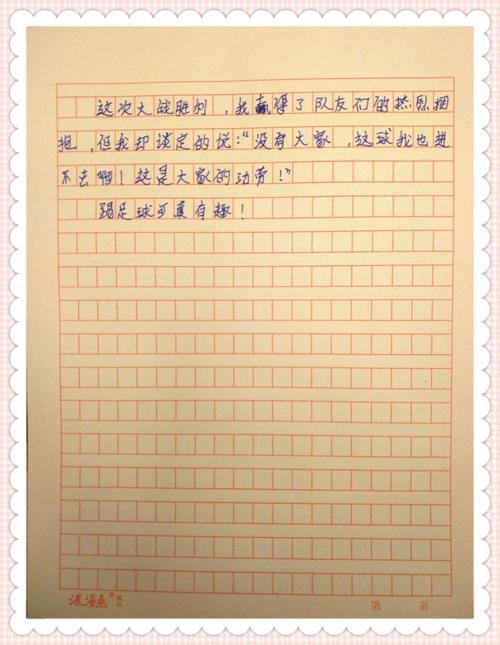 这次大战胜利，我赢得了队友们的热烈拥
抱，但我却淡定的说：“没有大家，这球我也进
不去啊！这是大家的功劳！”
踢足球可真有趣！
浪漫鱼
第 页